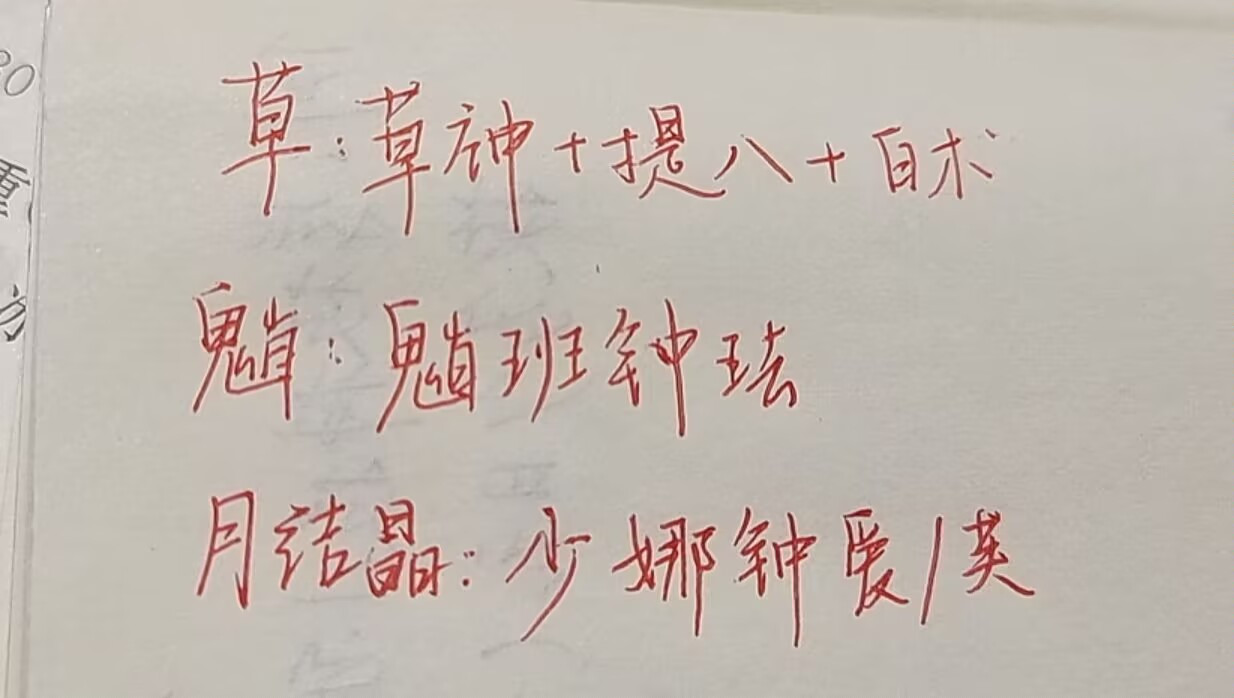 草：草神+提八+白术
魈：魈班钟珐
月结晶：少娜钟爱/英